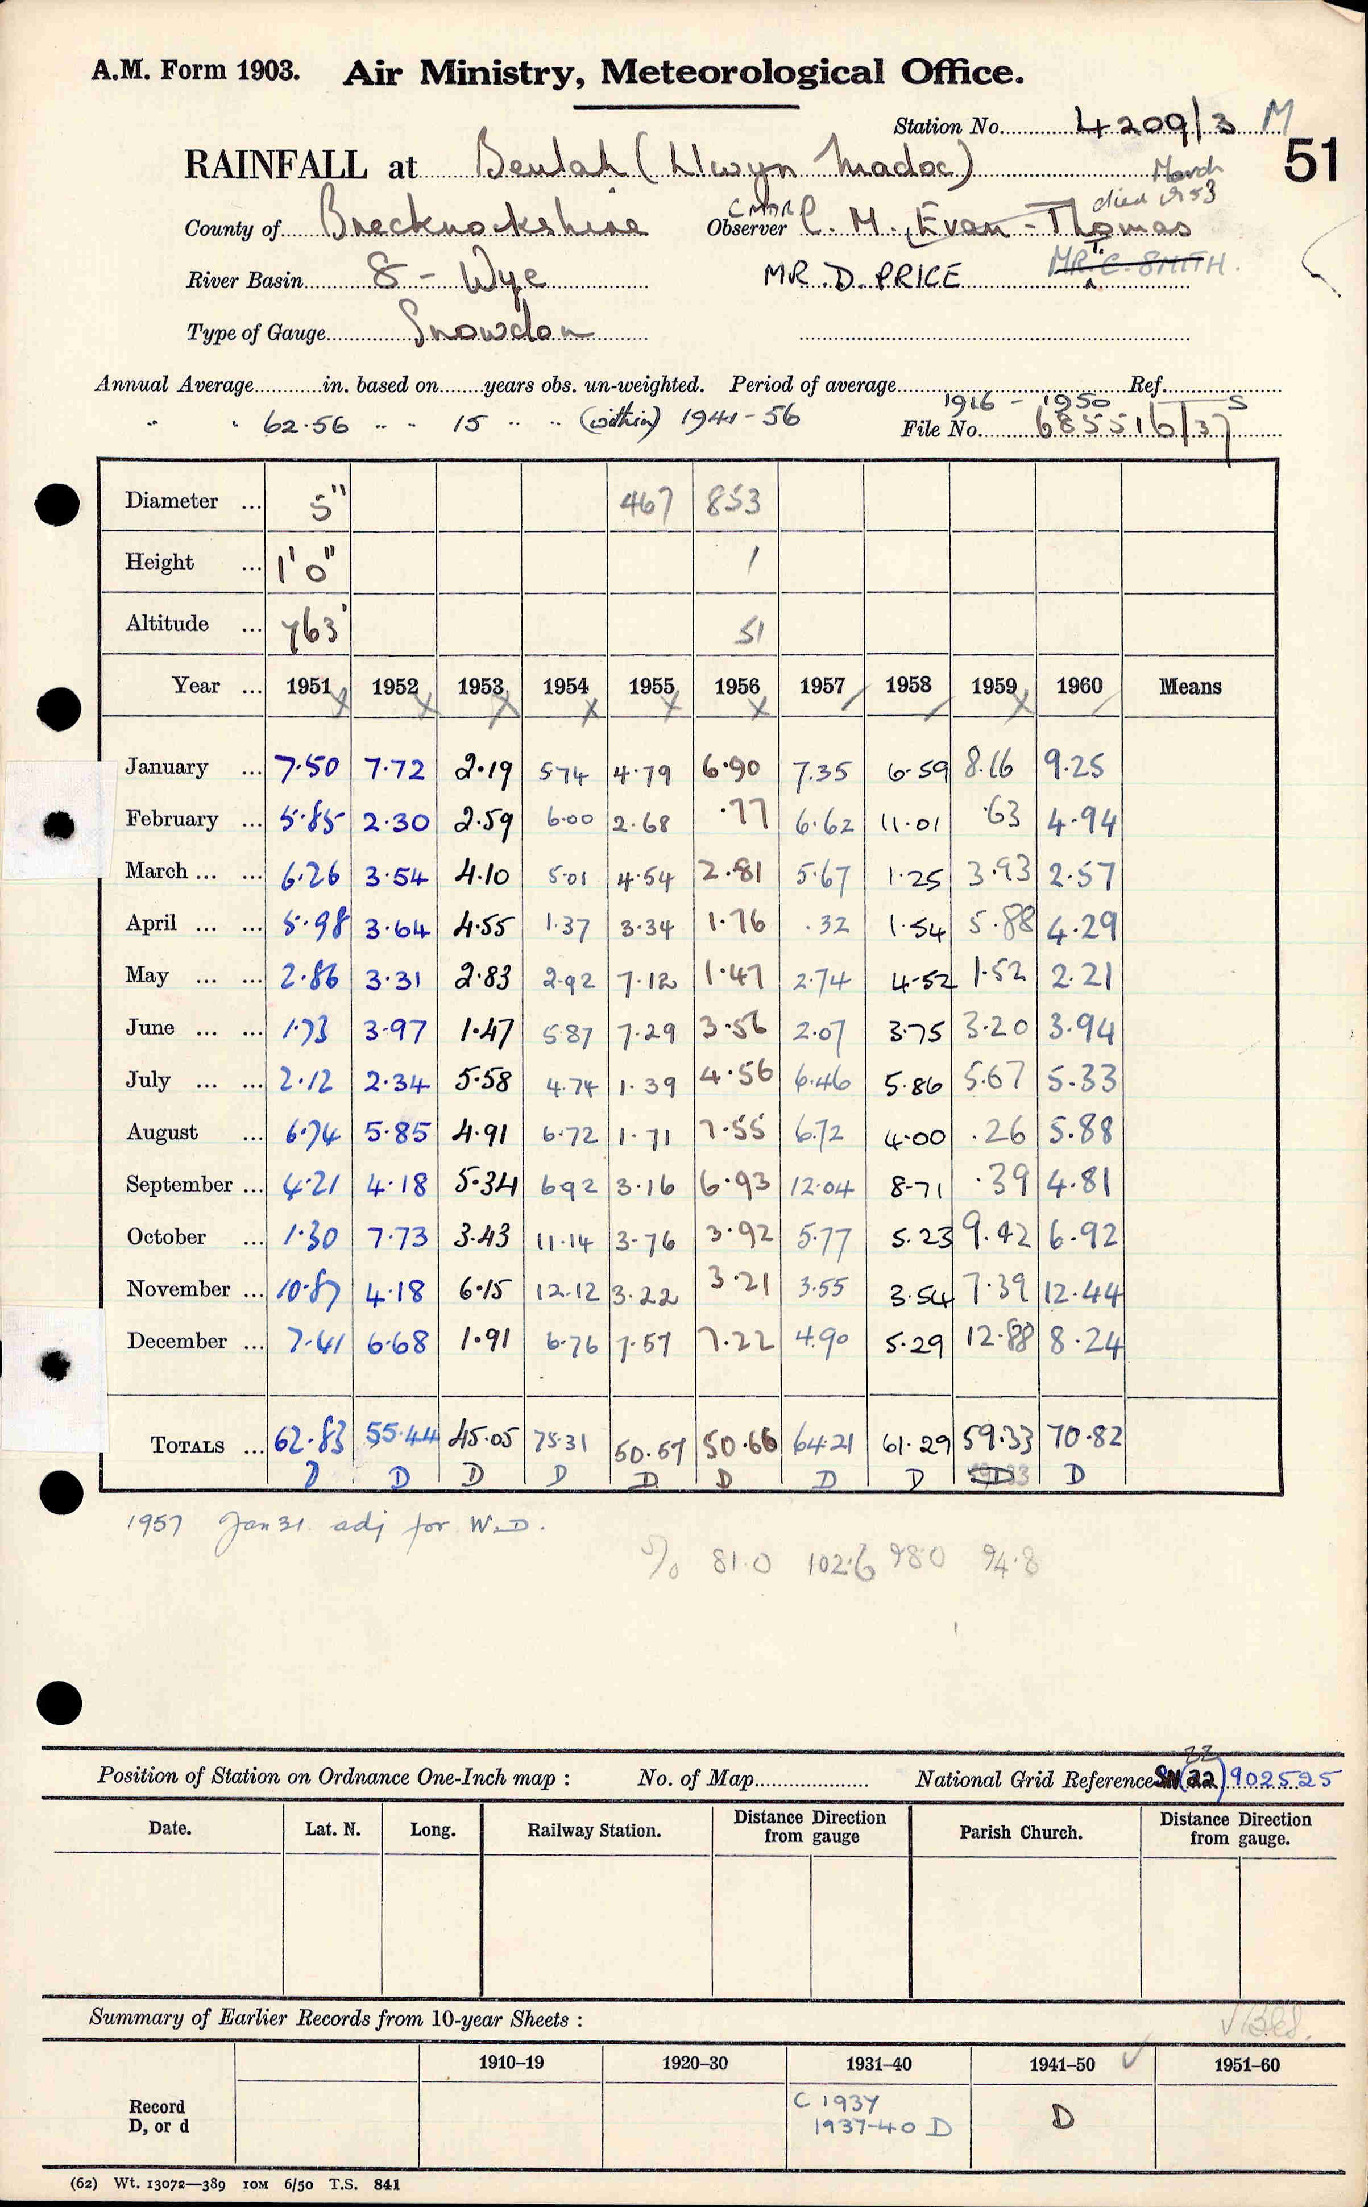 A.M. Form 1903. Air Ministry, Meteorological Office.
Station No. 4209/3 M
51
RAINFALL at Beulah (Llwyn Madoc)
March
died 1953
County of Brecknockshire Observer CMDR C. M. Evan-Thomas
River Basin 8 - Wye MR. D. PRICE MR. T. C. SMITH.
Type of Gauge Snowdon
Annual Average in. based on years obs. un-weighted. Period of average 1916 - 1950 Ref. S
" " 62.56 " " 15 " " (within) 1941-56 File No. 685516/37
Diameter ... 5" 467 853
Height ... 1' 0" 1
Altitude ... 763' 51
Year ... 1951 1952 1953 1954 1955 1956 1957 1958 1959 1960 Means
January ... 7.50 7.72 2.19 5.74 4.79 6.90 7.35 6.59 8.16 9.25
February ... 5.85 2.30 2.59 6.00 2.68 .77 6.62 11.01 .63 4.94
March ... ... 6.26 3.54 4.10 5.01 4.54 2.81 5.67 1.25 3.93 2.57
April ... ... 5.98 3.64 4.55 1.37 3.34 1.76 .32 1.54 5.88 4.29
May ... ... 2.86 3.31 2.83 2.92 7.12 1.47 2.74 4.52 1.52 2.21
June ... ... 1.73 3.97 1.47 5.87 7.29 3.56 2.07 3.75 3.20 3.94
July ... ... 2.12 2.34 5.58 4.74 1.39 4.56 6.46 5.86 5.67 5.33
August ... 6.74 5.85 4.91 6.72 1.71 7.55 6.72 4.00 .26 5.88
September ... 4.21 4.18 5.34 6.92 3.16 6.93 12.04 8.71 .39 4.81
October ... 1.30 7.73 3.43 11.14 3.76 3.92 5.77 5.23 9.42 6.92
November ... 10.87 4.18 6.15 12.12 3.22 3.21 3.55 3.54 7.39 12.44
December ... 7.41 6.68 1.91 6.76 7.57 7.22 4.90 5.29 12.88 8.24
TOTALS ... 62.83 55.44 45.05 75.31 50.57 50.66 64.21 61.29 59.33 70.82
D D D D D D D D D D
1957 Jan 31 adj for W.D.
% 81.0 102.6 98.0 94.8
Position of Station on Ordnance One-Inch map : No. of Map National Grid Reference SN (22) 902525
22
Date. Lat. N. Long. Railway Station. Distance Direction from gauge Parish Church. Distance Direction from gauge.
Summary of Earlier Records from 10-year Sheets :
1910-19 1920-30 1931-40 1941-50 1951-60
Record
D, or d
C 1937
1937-40 D
D
(62) Wt. 13072—389 10M 6/50 T.S. 841